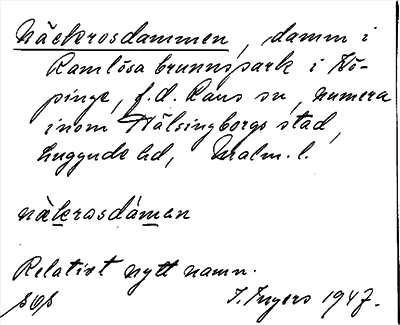 Näckrosdammen, damm i
Ramlösa brunnspark i Kö-
pinge, f.d. Raus sn, numera
inom Hälsingborgs stad,
Luggude hd, Malm. l.
näkrosdámen
Relativt nytt namn.
I. Ingers 1947.